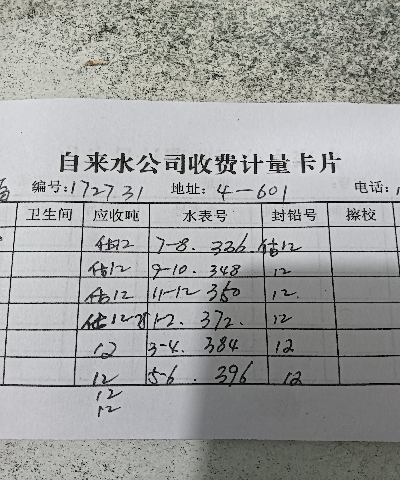 自来水公司收费计量卡片
编号:172731 地址: 4-601 电话:
卫生间 应收吨 水表号 封铅号 擦校
估12 7-8. 336. 估12
估12 9-10. 348 12
估12 11-12 360 12.
估12 1-2. 372. 12
12 3-4. 384 12
12 5-6. 396 12
12
12